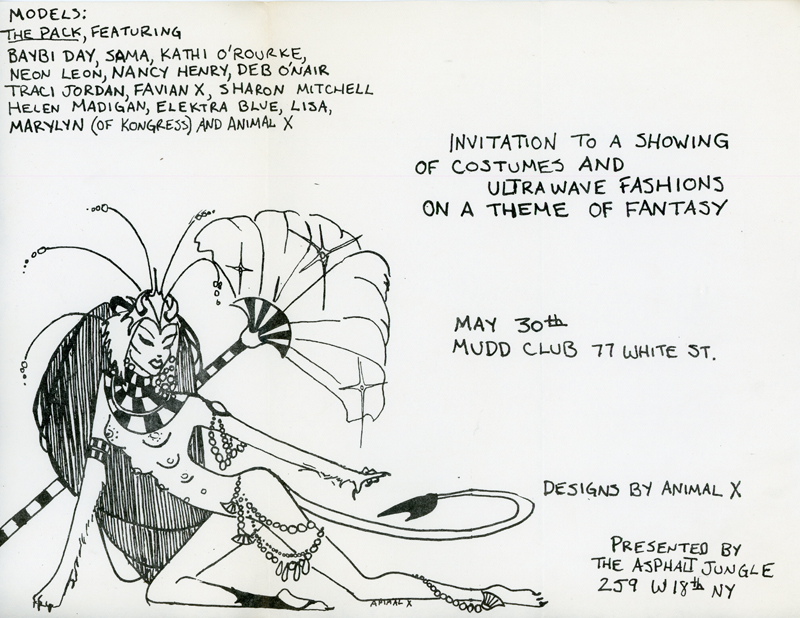 MODELS:
THE PACK, FEATURING
BAYBI DAY, SAMA, KATHI O'ROURKE,
NEON LEON, NANCY HENRY, DEB O'NAIR
TRACI JORDAN, FAVIAN X, SHARON MITCHELL
HELEN MADIGAN, ELEKTRA BLUE, LISA,
MARYLYN (OF KONGRESS) AND ANIMAL X
INVITATION TO A SHOWING
OF COSTUMES AND
ULTRAWAVE FASHIONS
ON A THEME OF FANTASY
MAY 30th
MUDD CLUB 77 WHITE ST.
DESIGNS BY ANIMAL X
PRESENTED BY
THE ASPHALT JUNGLE
259 W 18th NY
ANIMAL X